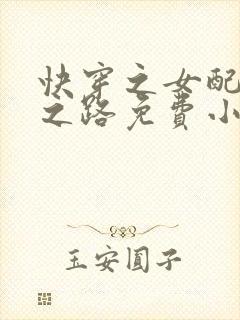 快穿之女配
之路免费小
玉安圆子